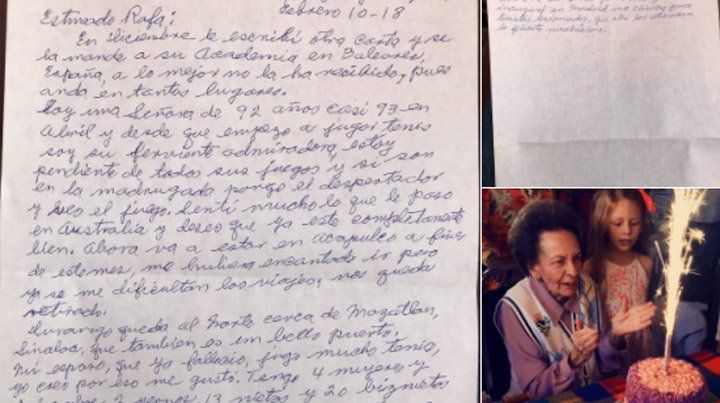 Febrero 10-18
Estimado Rafa:
En diciembre le escribí otra carta y se
la mande a su Academia en Baleares,
España, a lo mejor no la ha recibido, pues
anda en tantos lugares.
Soy una Señora de 92 años casi 93 en
Abril y desde que empezo a jugar tenis
soy su ferviente admiradora, estoy
pendiente de todos sus juegos y si son
en la madrugada pongo el despertador
y veo el juego. Sentí mucho lo que le paso
en Australia y deseo que ya este completamente
bien. Ahora va a estar en Acapulco a fines
de este mes, me hubiera encantado ir pero
ya se me dificultan los viajes, nos queda
retirado.
Durango queda al Norte cerca de Mazatlan,
Sinaloa, que tambien es un bello puerto.
Mi esposo, que ya fallecio, jugo mucho tenis,
yo creo por eso me gusta. Tengo 4 mujeres y
2 13 nietos y 20 biznietos
en una para
que